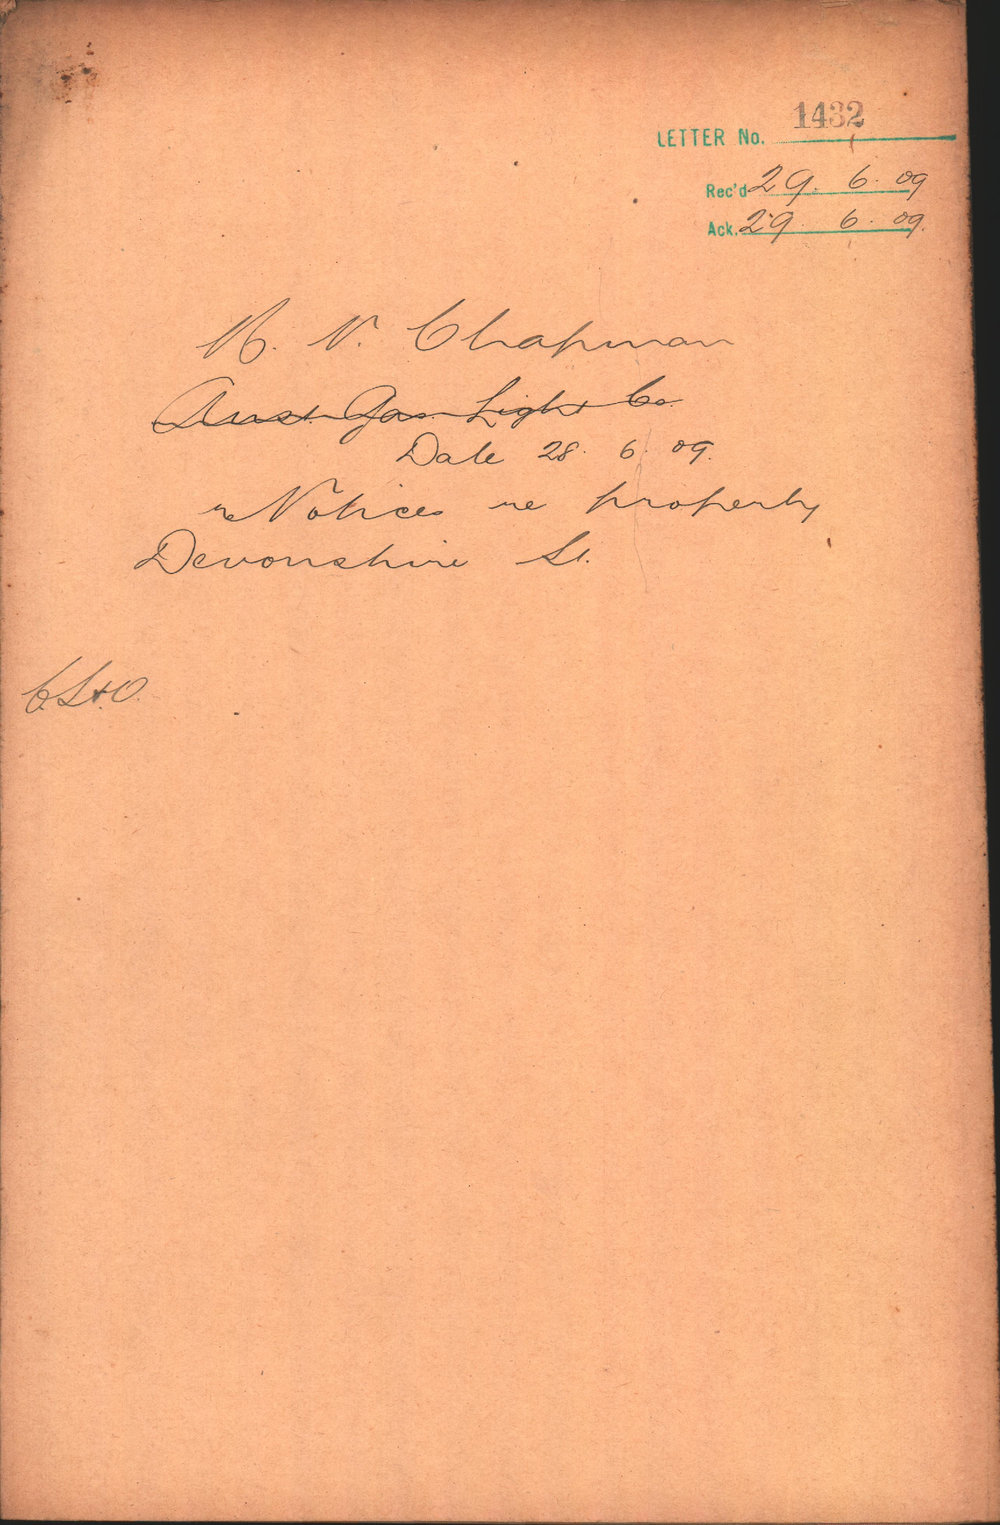 LETTER No. 1432
Rec'd 29. 6. 09
Ack. 29 6. 09.
N. Chapman
Aust. Gas Light Co.
Date 28. 6. 09.
re Notices re property
Devonshire St.